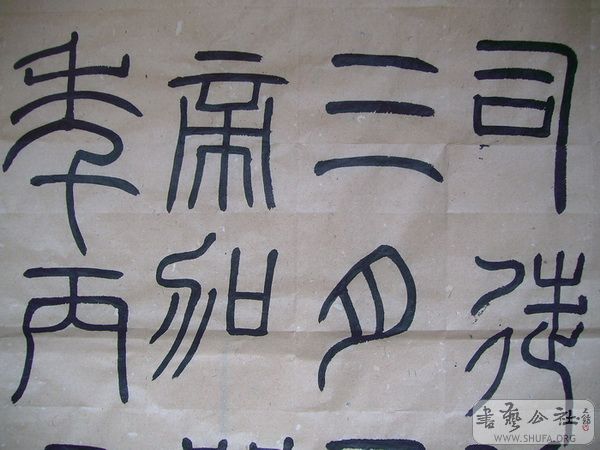 司徒
三月
帝加
年丙
書藝公社
WWW.SHUFA.ORG